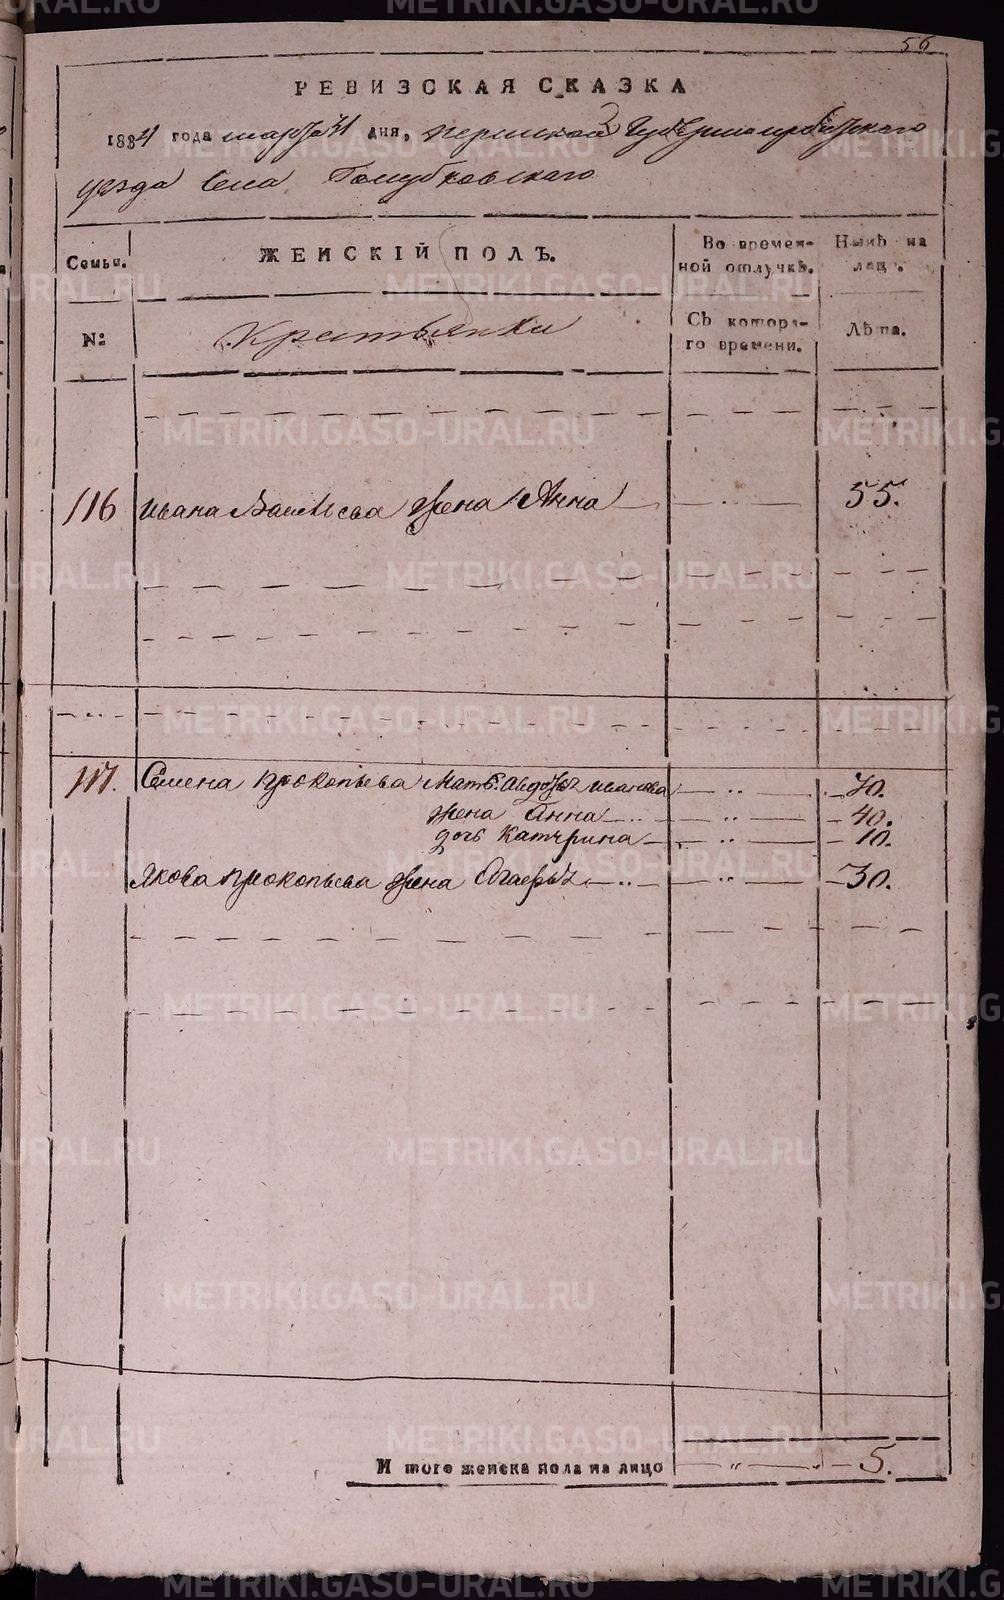 56
РЕВИЗСКАЯ СКАЗКА
1834 года марта 31 дня, Пермской Губернии Ирбитского
уезда Села Голубковского
Семьи. ЖЕНСКІЙ ПОЛЪ. Во времен- Нынѣ на
ной отлучкѣ. лицо.
№ Крестьянки Съ которо- Лѣта.
го времени.
116 Ивана Васильева жена Анна 55.
117. Семена Прокопьева Мать Авдотья Иванова 70.
жена Анна 40.
дочь Катерина 10.
Якова Прокопьева жена Агафья 30.
Итого женска пола на лицо 5.
METRIKI.GASO-URAL.RU